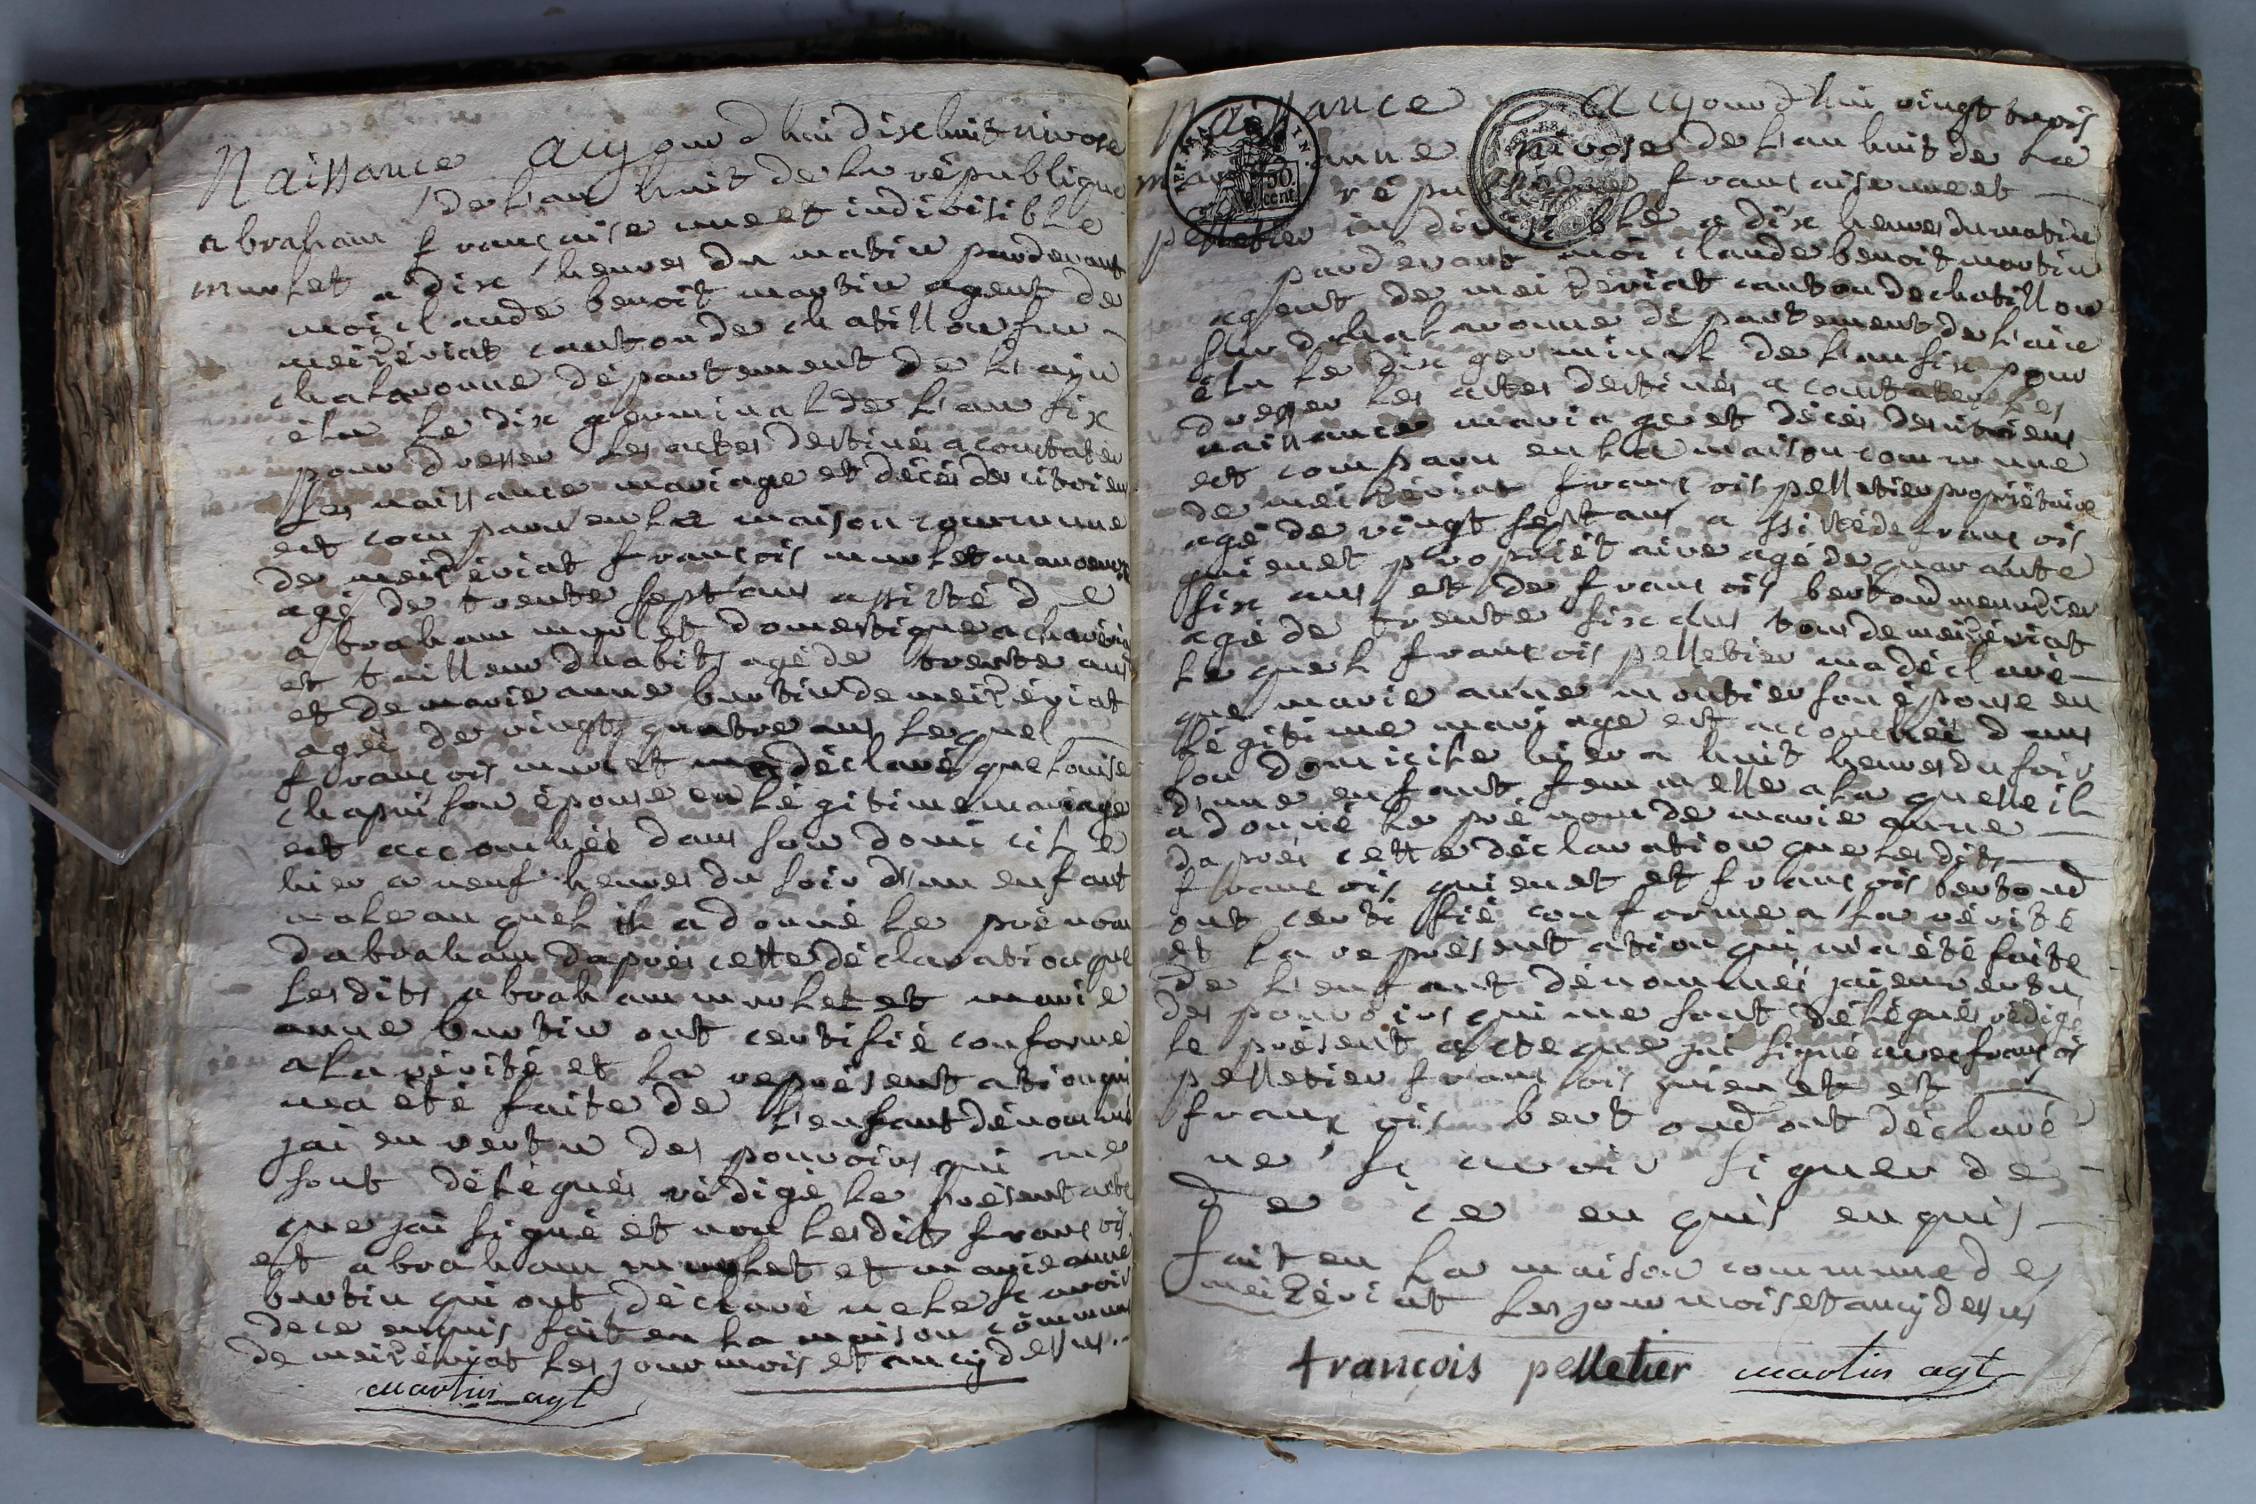 Naissance aujourdhui dixhuit nivose
de l'an huit de la république
abraham française une et indivisible
murlet a dix heures du matin pardevant
moi claude benoit martin agent de
meizériat canton de chatillon sur
chalaronne département de l'ain
élu le dix germinal de l'an six
pour dresser les actes destinés a constater
les naissance mariage et décés des citoiens
est comparu en la maison commune
de meizériat françois murlet manoeuvre
agé de trente sept ans assisté de
abraham murlet domestique a
et tailleur dhabits agé de trente ans
et de marie anne burtin de meizériat
agée de vingt quatre ans lequel
françois murlet ma déclaré que louise
chapui son épouse en légitime mariage
est accouchée dans son domicile
hier a neuf heures du soir d'un enfant
male au quel il a donné le prénom
dabraham daprés cette déclaration que
lesdits abraham murlet et marie
anne burtin ont certifié conforme
a la vérité et la représentation qui
ma été faite de l'enfant dénommé
jai en vertu des pouvoirs qui me
sont délégués rédigé le présent acte
que jai signé et non lesdits françois
et abraham murlet et marie anne
burtin qui ont déclaré ne le scavoir
de ce enquis fait en la maison commune
de meizériat les jour mois et an cy dessus
martin agt
Naissance aujourdhui vingt trois
marie anne nivose de l'an huit de la
république française une et
pelletier indivisible a dix heures du matin
pardevant moi claude benoit martin
agent de meizériat canton de chatillon
sur chalaronne département de l'ain
élu le dix germinal de l'an six pour
dresser les actes destinés a constater les
naissance mariage et décés des citoiens
est comparu en la maison commune
de meizériat françois pelletier propriétaire
agé de vingt sept ans assisté de françois
guienet propriétaire agé de quarante
six ans et de françois bertoud meunier
agé de trente six ans tous de meizériat
lequel françois pelletier ma déclaré
que marie anne montier son épouse en
légitime mariage est accouchée dans
son domicile hier a huit heures du soir
d'une enfant femmelle a la quelle il
a donné le prénom de marie anne
daprés cette déclaration que lesdits
françois guienet et françois bertoud
ont certifié conforme a la vérité
et la représentation qui ma été faite
de l'enfant dénommé jai en vertu
des pouvoirs qui me sont délégués rédigé
le présent acte que jai signé avec françois
pelletier françois guienet et
françois bertoud ont déclaré
ne scavoir signer de
de ce enquis enquis
fait en la maison commune de
meizériat les jour mois et an cy dessus
françois pelletier martin agt
50
cent